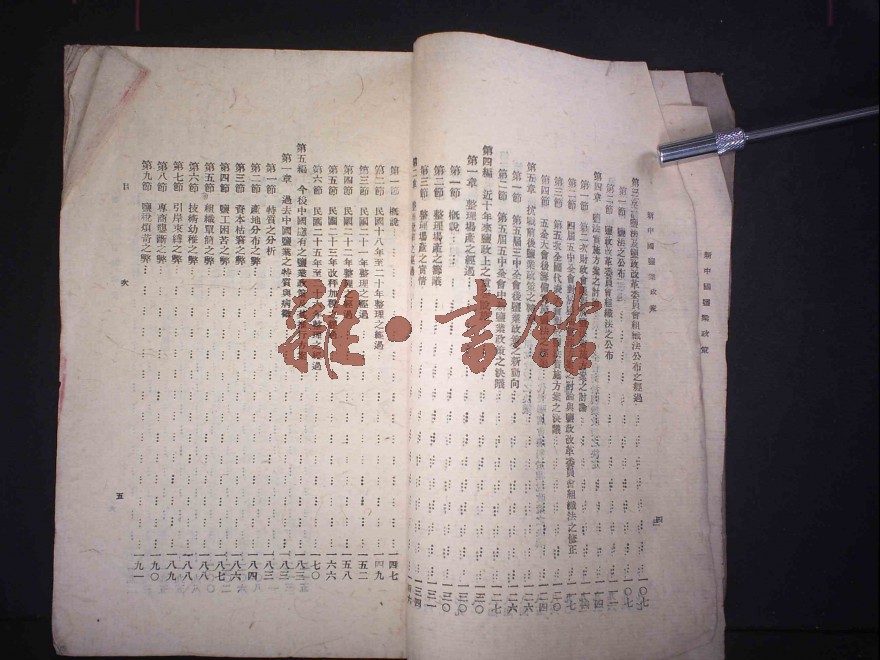 新中國鹽業政策
新中國鹽業政策
四
第三章 鹽法及鹽政改革委員會組織法公布之經過 一〇七
第一節 鹽法之公布 一〇七
第二節 鹽政改革委員會組織法之公布
第四章 鹽法實施方案之討論
第一節 第二次財政會議
第二節 四屆五中全會
第三節 第五次全國代表
第四節 五全大會後
第五章 抗戰前後鹽業政策之
第一節 第五屆三中全會後鹽業政策之新動向 一二六
第二節 第五屆五中全會中鹽業政策之決議 一二七
第四編 近十年來鹽政上之 一三〇
第一章 整理場產之經過 一三〇
第一節 概說 一三〇
第二節 整理場產之籌議 一三一
第三節 整理場產之實情 一三四
第二章
第一節 概說 一四七
第二節 民國十八年至二十年整理之經過 一四九
第三節 民國二十一年整理之經過 一五二
第四節 民國二十二年整理之經過 一五八
第五節 民國二十三年改秤加稅之經過 一六六
第六節 民國二十五年至 整理之經過 一七〇
第五編 今後中國應有之鹽業政策 一八三
第一章 過去中國鹽業之特質與病徵 一八三
第一節 特質之分析 一八三
第二節 產地分布之弊 一八四
第三節 資本枯窘之弊 一八六
第四節 鹽工困苦之弊 一八七
第五節 組織單簡之弊 一八八
第六節 技術幼稚之弊 一八八
第七節 引岸束縛之弊 一八九
第八節 專商壟斷之弊 一九〇
第九節 鹽稅煩苛之弊 一九一
目次
五
雜·書館